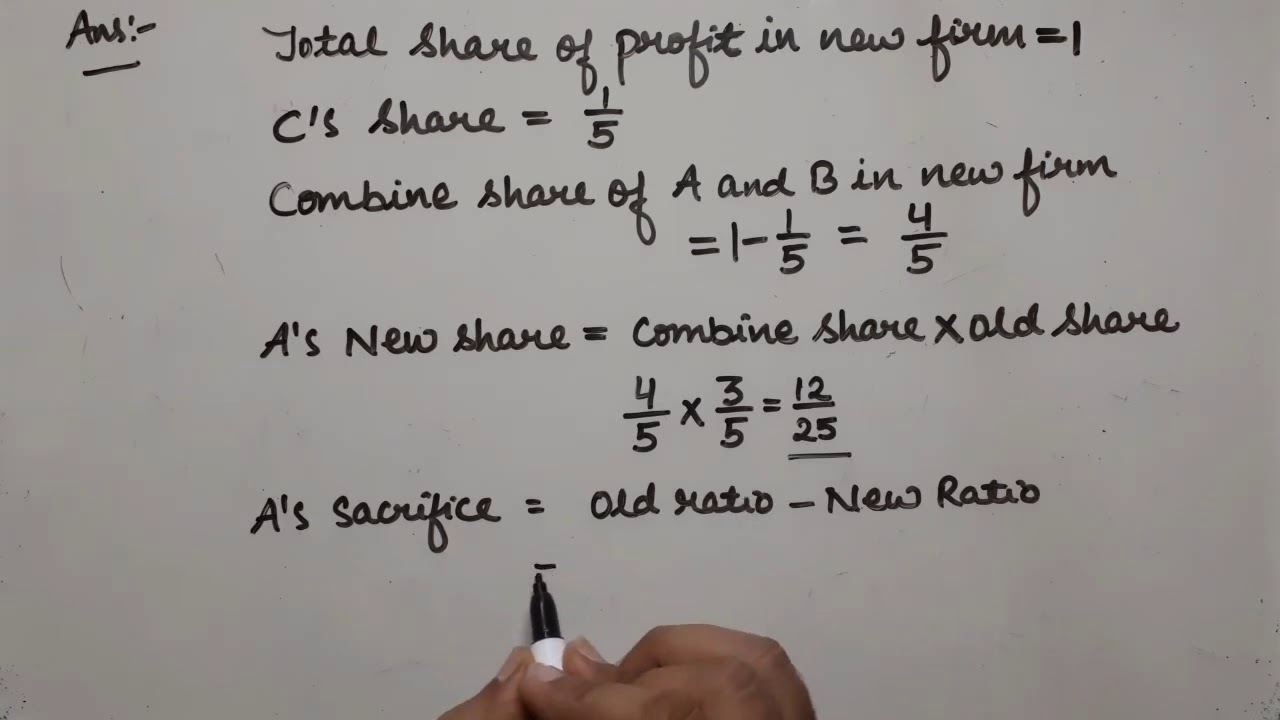 Ans:-
Total share of profit in new firm = 1
C's share = 1/5
Combine share of A and B in new firm
= 1 - 1/5 = 4/5
A's New share = Combine share × old share
4/5 × 3/5 = 12/25
A's sacrifice = old ratio - New Ratio